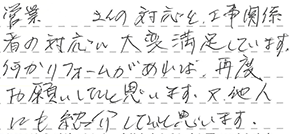 営業　　さんの対応と、工事関係
者の対応に大変満足しています。
何かリフォームがあれば、再度
お願いしたいと思います。又、他人
にも紹介したいと思います。